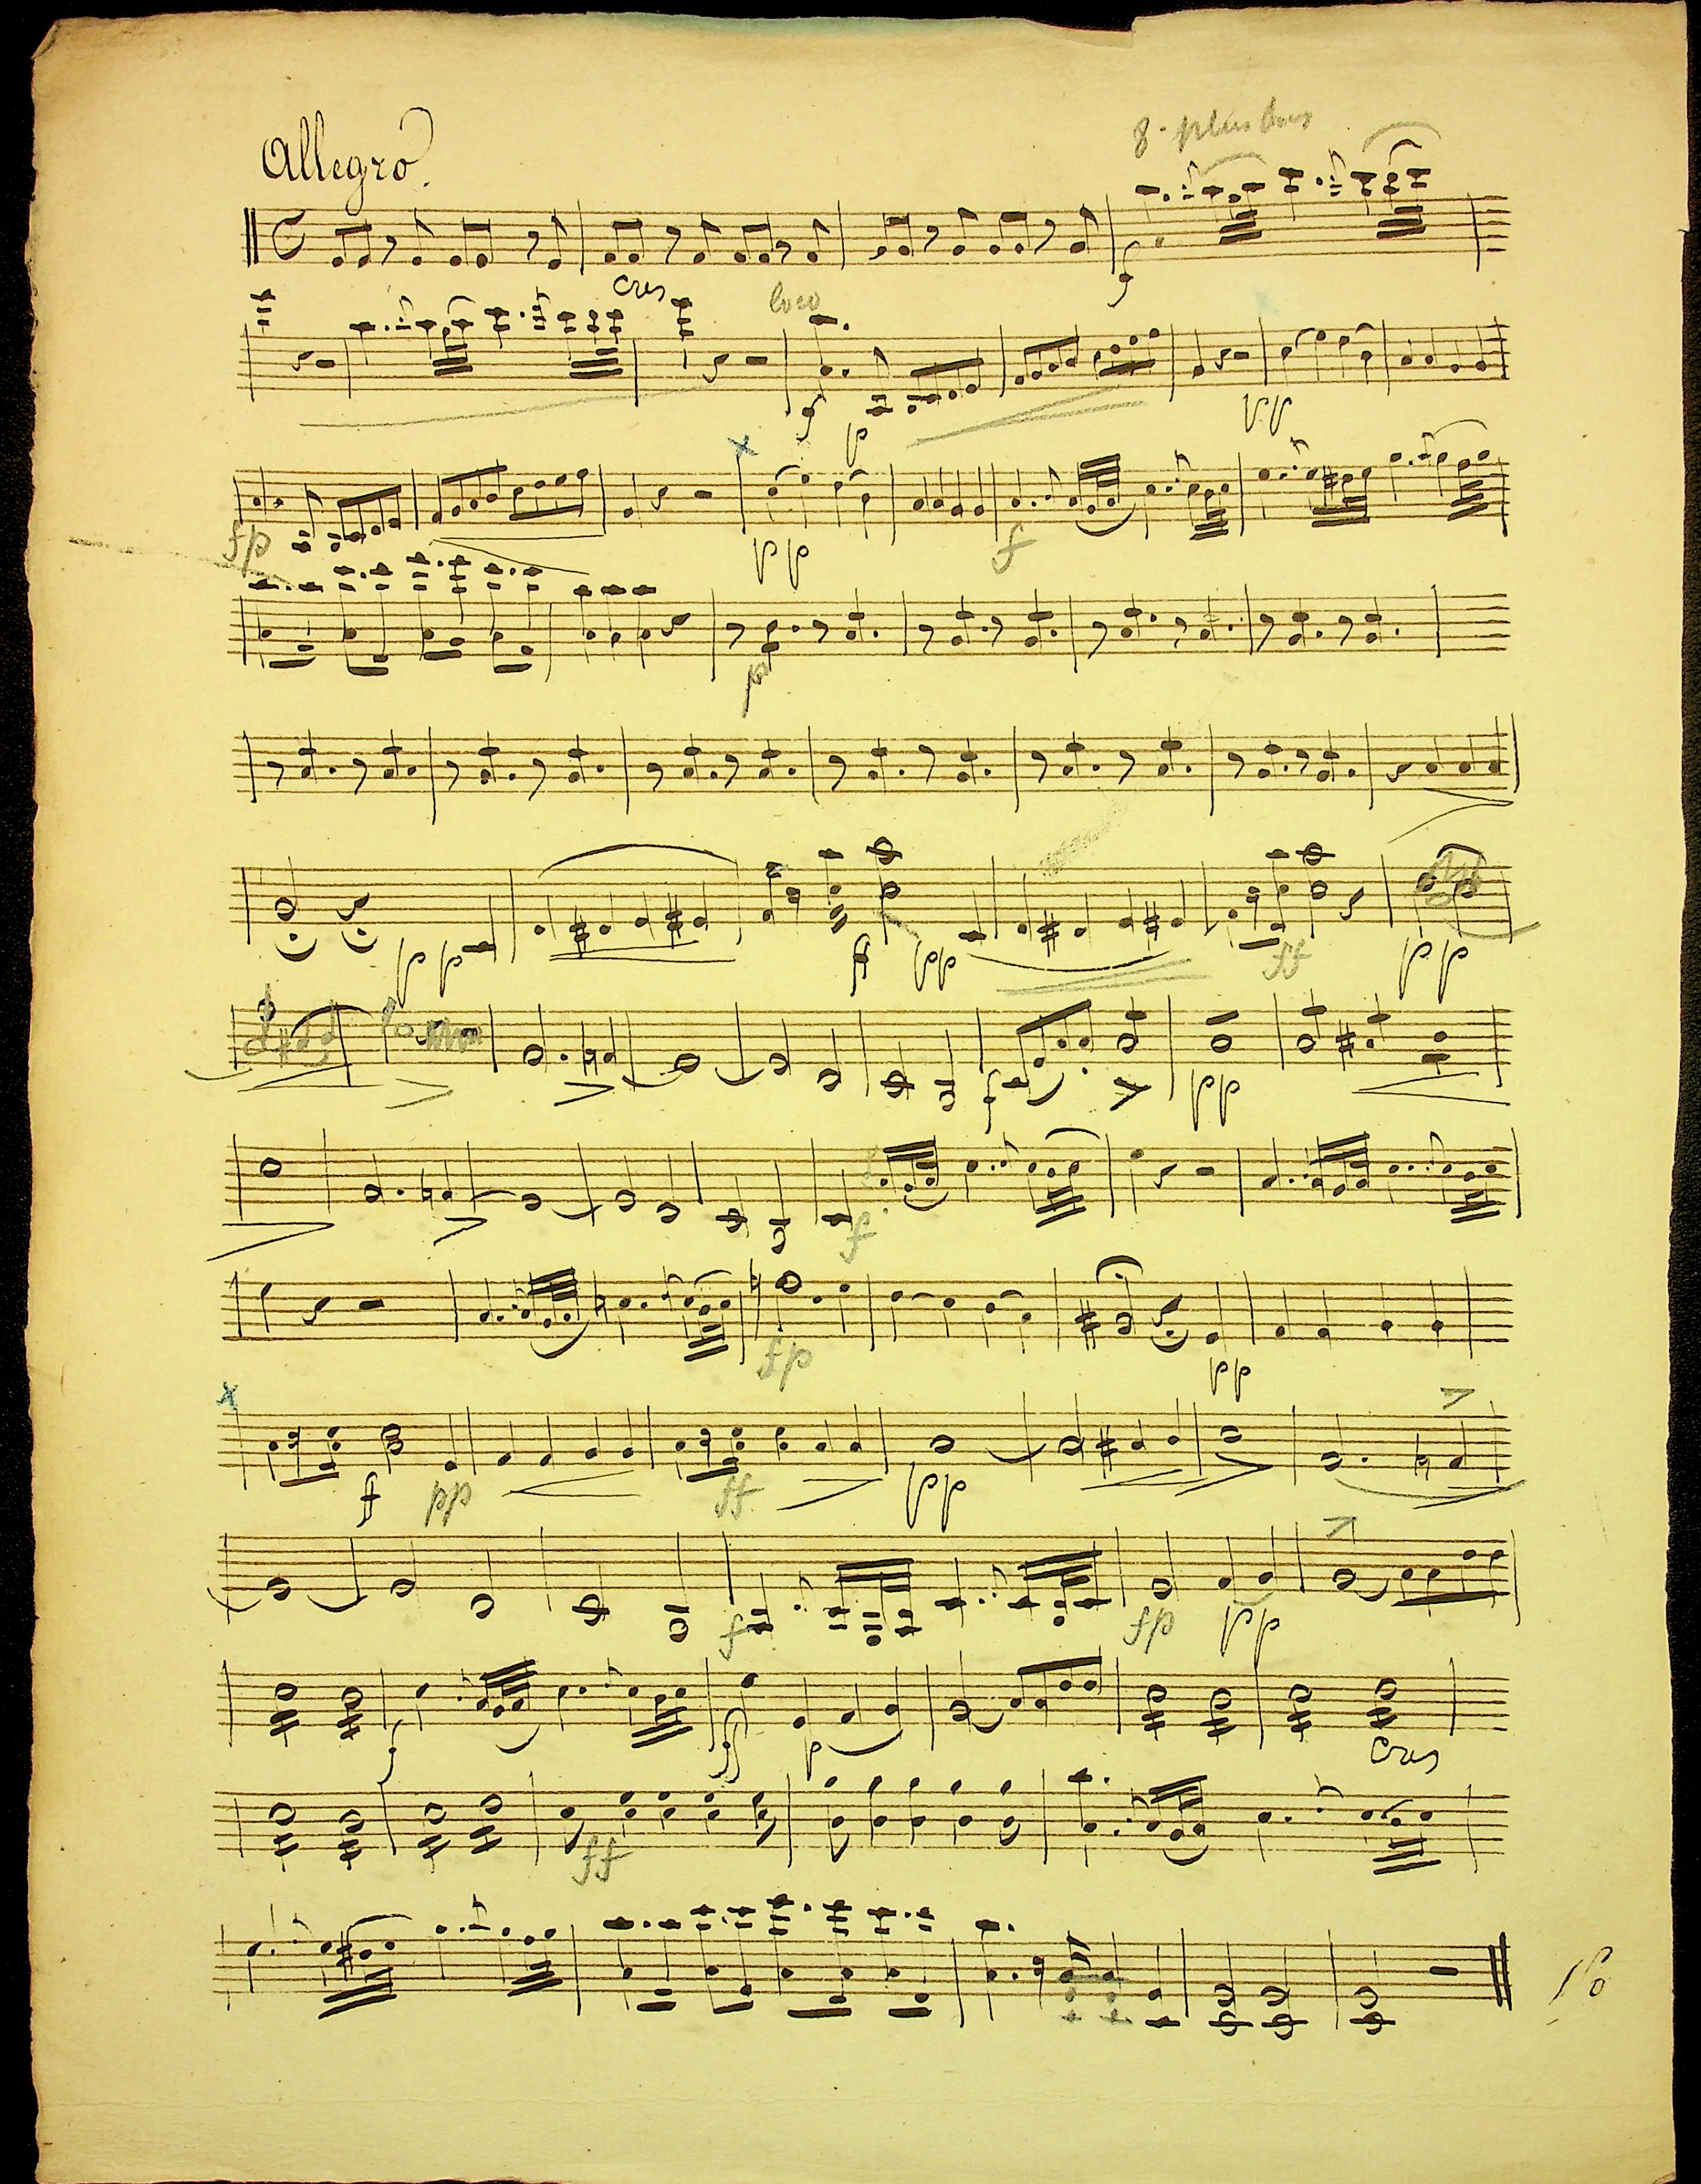 Allegro.
8. plus bas
f
cres
loco
f p pp
fp pp f
p
pp f pp ff pp
f pp
f
fp pp
f pp ff pp
f fp pp
f ff p cres
ff